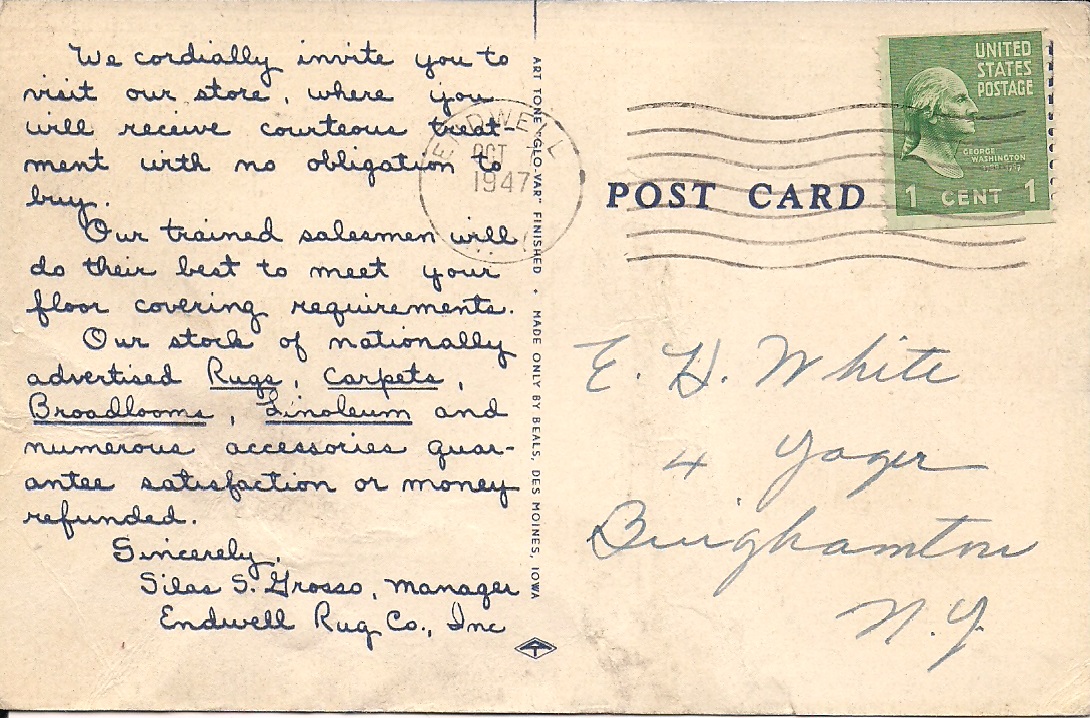 We cordially invite you to
visit our store, where you
will receive courteous treat-
ment with no obligation to
buy.
Our trained salesmen will
do their best to meet your
floor covering requirements.
Our stock of nationally
advertised Rugs, Carpets,
Broadlooms, Linoleum and
numerous accessories guar-
antee satisfaction or money
refunded.
Sincerely,
Silas S. Grosso, manager
Endwell Rug Co., Inc
ART TONE "GLO-VAR" FINISHED ✦ MADE ONLY BY BEALS, DES MOINES, IOWA
ENDWELL
OCT
1947
POST CARD
UNITED
STATES
POSTAGE
GEORGE
WASHINGTON
1 CENT 1
E. H. White
4 Yager
Binghamton
N.Y.